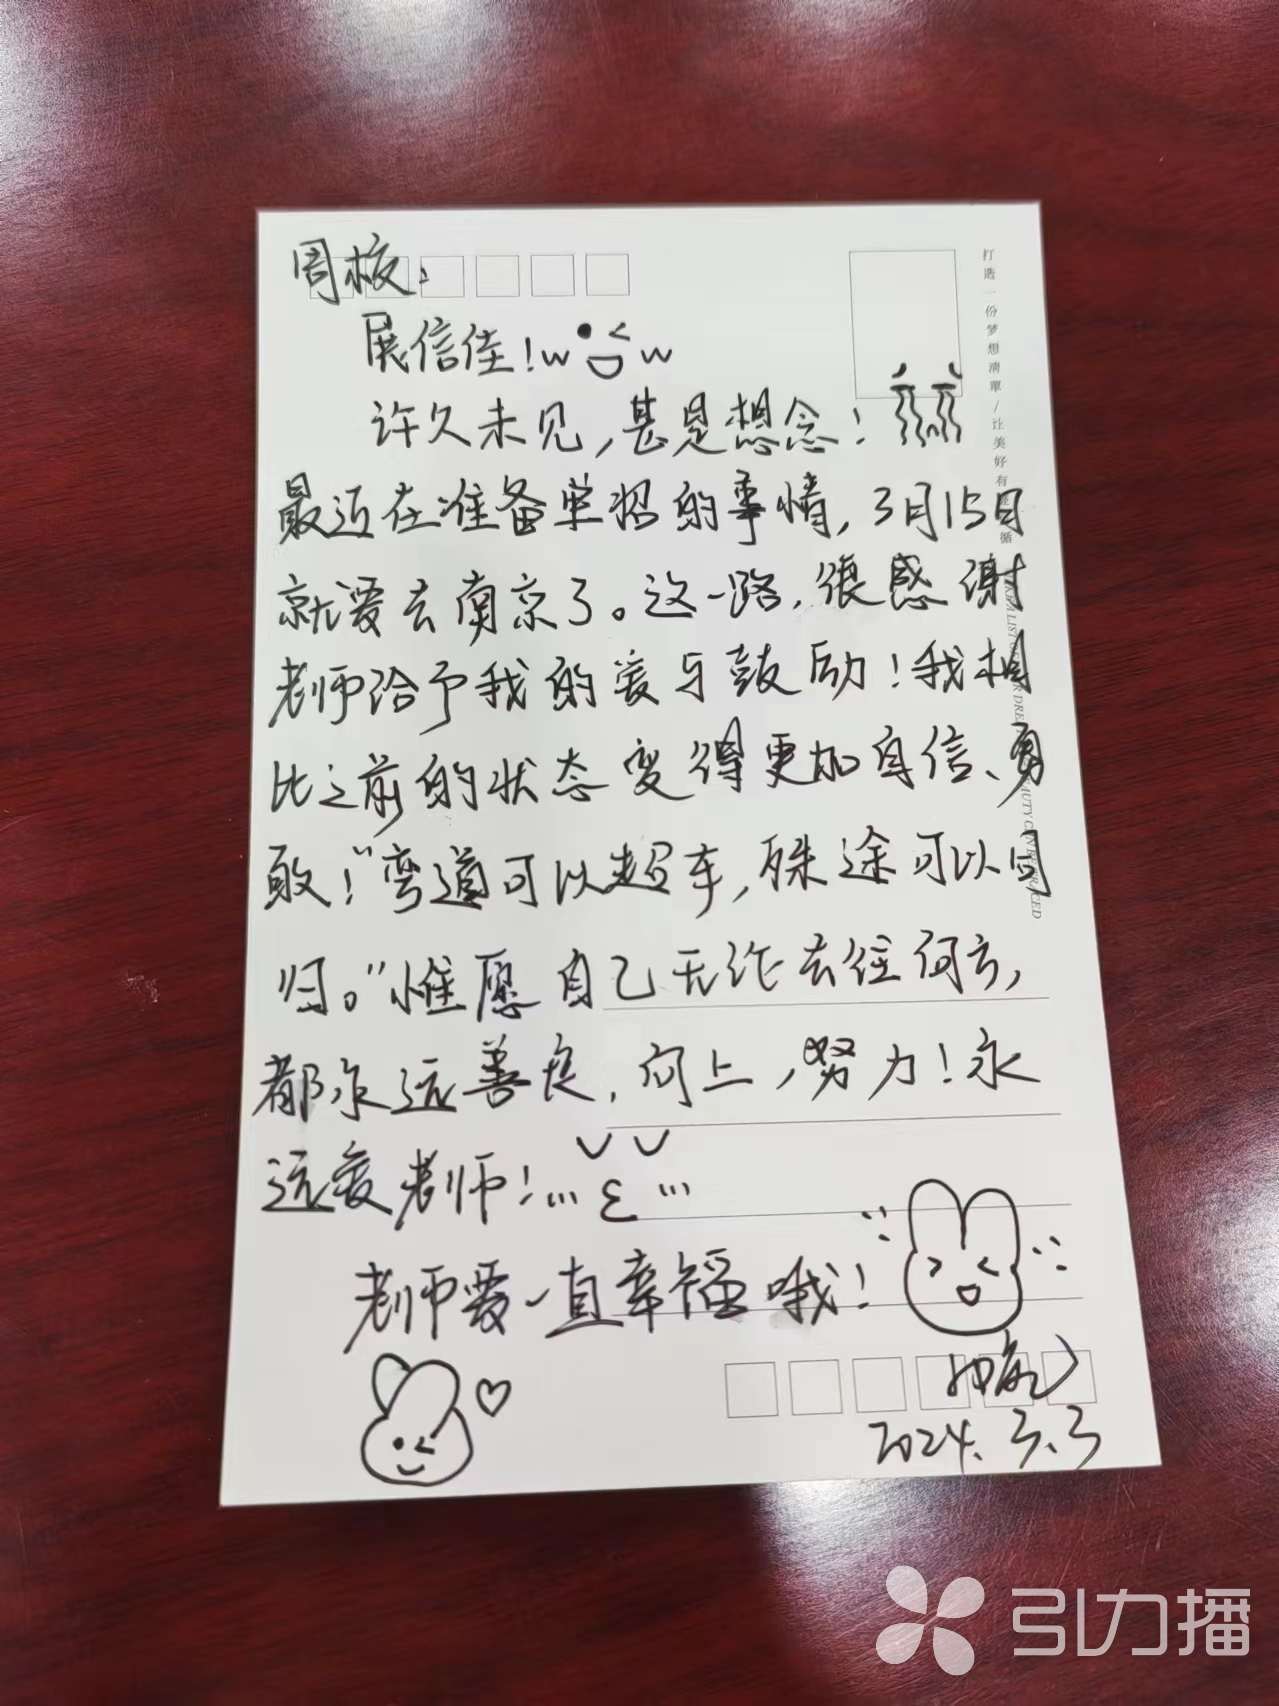 周校：
展信佳！
许久未见，甚是想念！
最近在准备单招的事情，3月15日
就要去南京了。这一路，很感谢
老师给予我的爱与鼓励！我相
比之前的状态变得更加自信、勇
敢！“弯道可以超车，殊途可以同
归。”惟愿自己无论去往何方，
都永远善良，向上，努力！永
远爱老师！
老师要一直幸福哦！
2024.3.3
打造一份梦想清單/让美好有
循
引力播